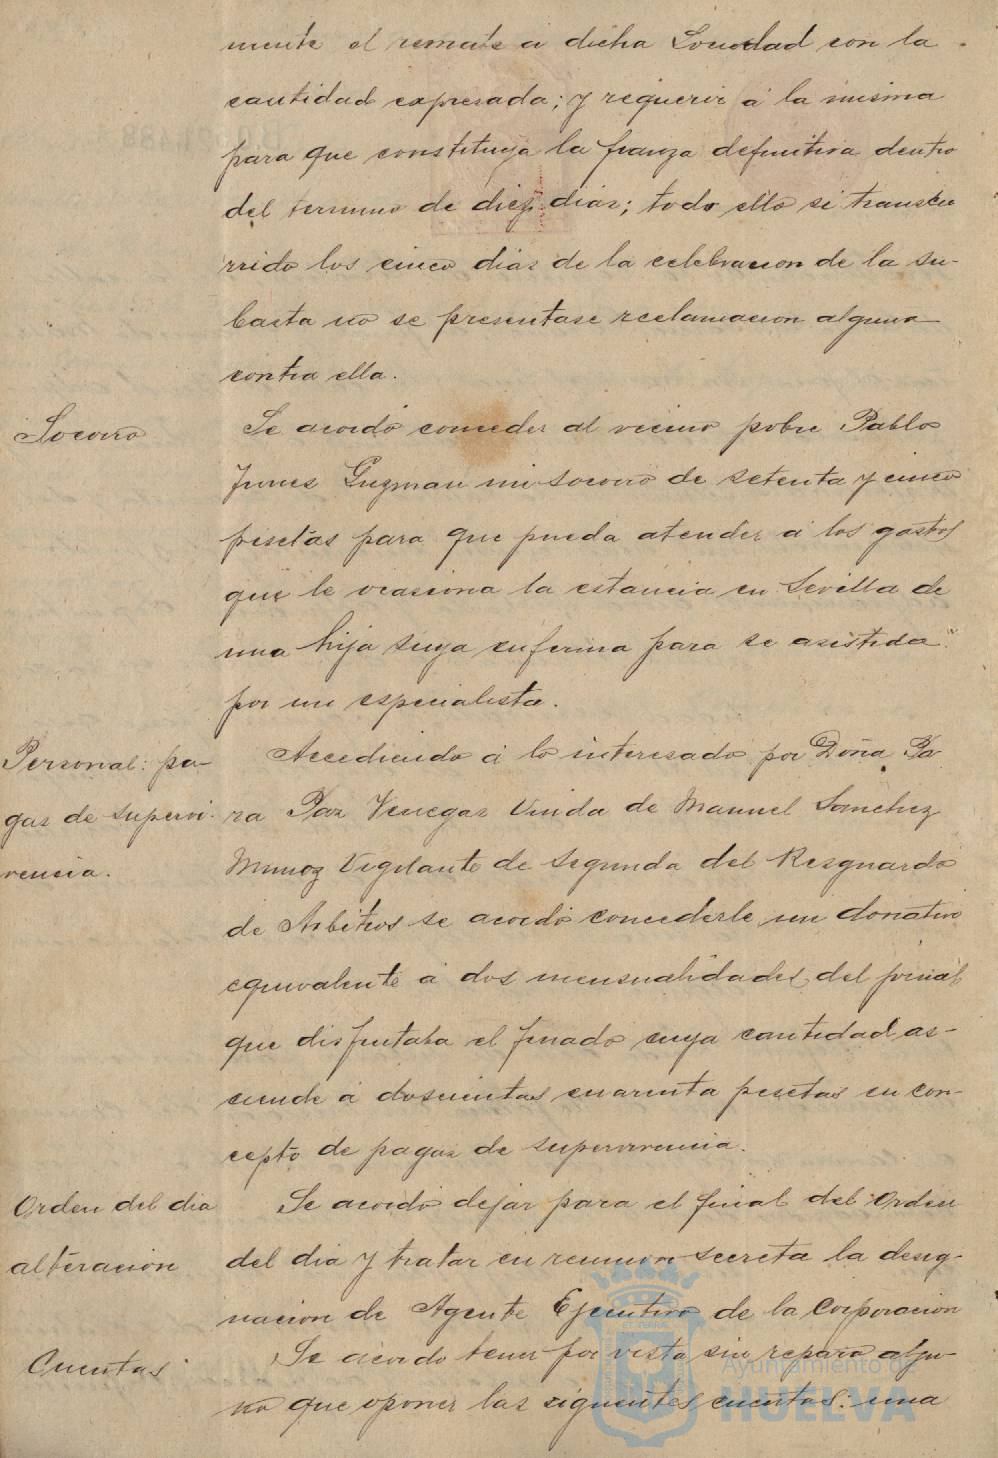 mente el remate a dicha Sociedad con la
cantidad expresada; y requerir á la misma
para que constituya la fianza definitiva dentro
del termino de diez dias; todo ello si transcu
rrido los cinco dias de la celebracion de la su-
basta no se presentase reclamacion alguna
contra ella.
Socorro
Se acordó conceder al vecino pobre Pablo
Funes Guzman un socorro de setenta y cinco
pesetas para que pueda atender á los gastos
que le ocasiona la estancia en Sevilla de
una hija suya enferma para se asistida
por un especialista.
Personal: pa-
gas de supervi-
vencia.
Accediendo á lo interesado por Doña
Paz Venegas Viuda de Manuel Sanchez
Munoz Vigilante de segunda del Resguardo
de Arbitros se acordó concederle un donativo
equivalente á dos mensualidades del jornal
que disfrutaba el finado cuya cantidad as-
ciende á doscientas cuarenta pesetas en con-
cepto de pagas de supervivencia.
Orden del dia
alteracion
Se acordó dejar para el final del orden
del dia y tratar en reunion secreta la desig-
nacion de Agente Ejecutivo de la Corporacion
Cuentas
Se acordo tener por vista sin reparo algu-
no que oponer las siguientes cuentas: una
Ayuntamiento de
HUELVA